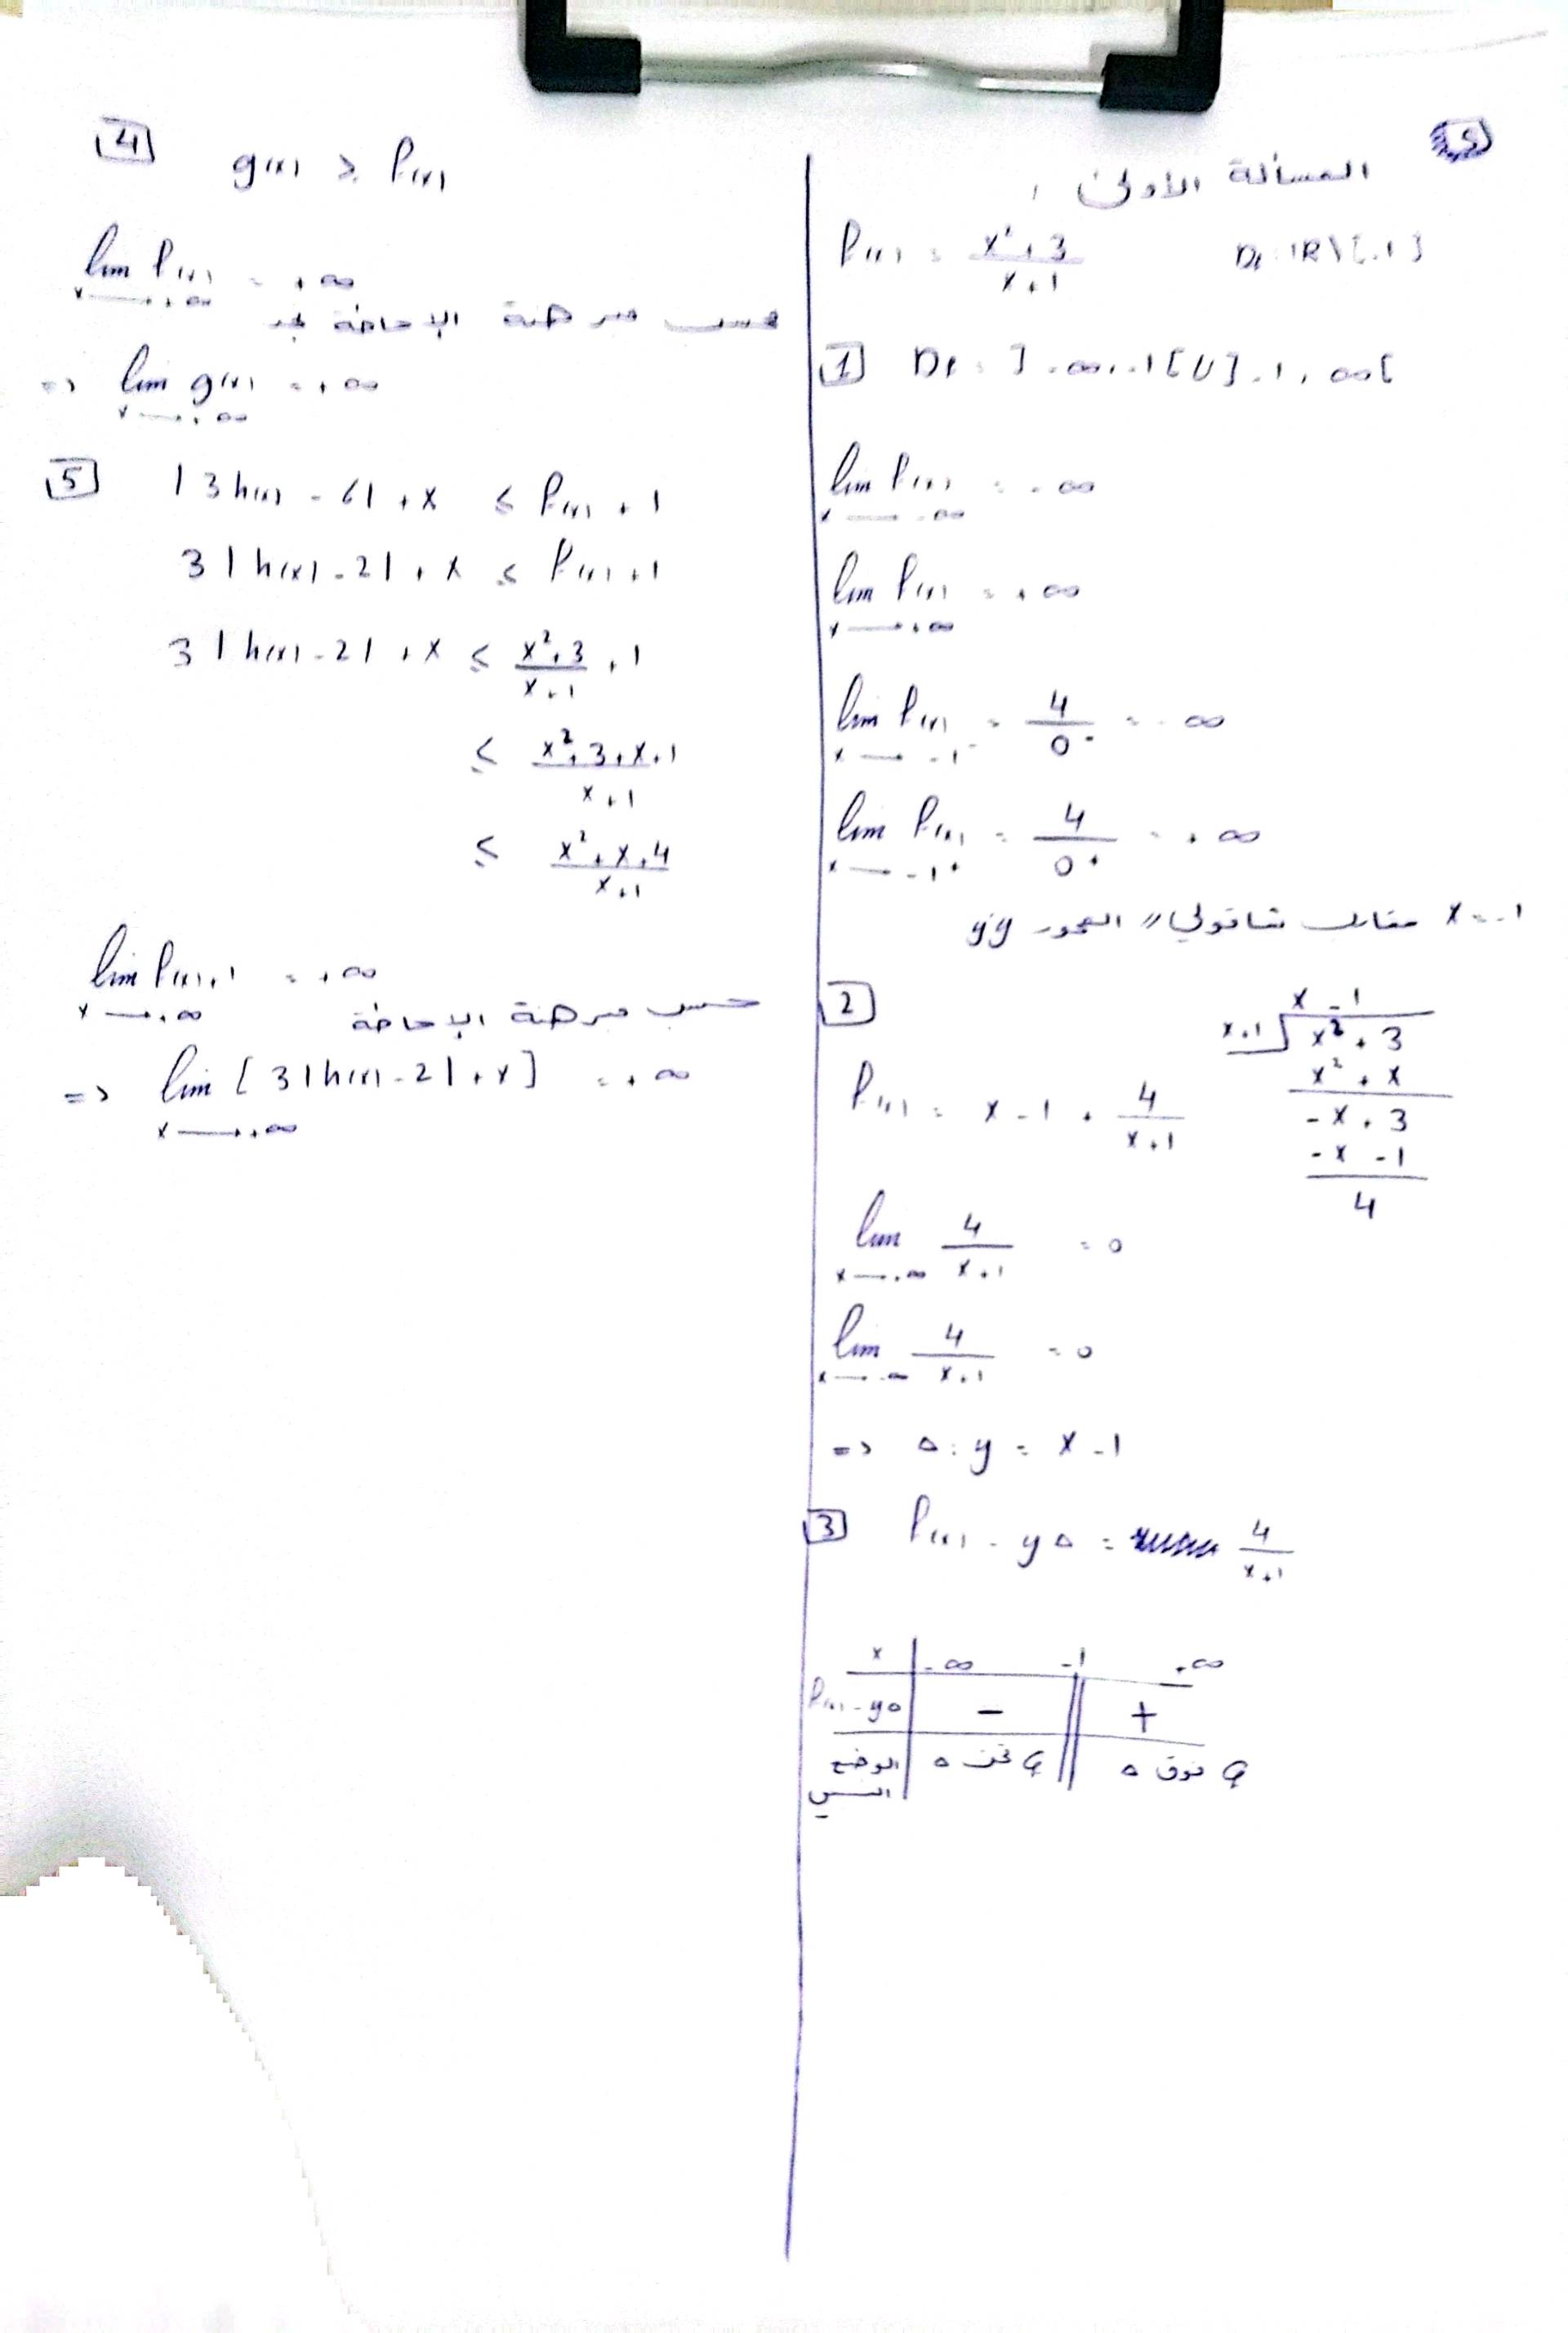 المسألة الأولى :
f(x) = x²+3 / x+1    Df = IR\{-1}
[1] Df = ]-∞,-1[ U ]-1,+∞[
lim f(x) = -∞
x → -∞
lim f(x) = +∞
x → +∞
lim f(x) = 4/0⁻ = -∞
x → -1⁻
lim f(x) = 4/0⁺ = +∞
x → -1⁺
x = -1 مقارب شاقولي // المحور y'y
[2]
x - 1
x+1 | x² + 3
x² + x
-x + 3
-x - 1
4
f(x) = x - 1 + 4/x+1
lim 4/x+1 = 0
x → +∞
lim 4/x+1 = 0
x → -∞
=> Δ: y = x - 1
[3] f(x) - yΔ = 4/x+1
x | -∞ -1 +∞
f(x) - yΔ | - || +
الوضع النسبي | C تحت Δ || C فوق Δ
[4] g(x) > f(x)
lim f(x) = +∞
x → +∞
حسب مبرهنة الإحاطة نجد
=> lim g(x) = +∞
x → +∞
[5] |3h(x) - 6| + x ≤ f(x) + 1
3|h(x) - 2| + x ≤ f(x) + 1
3|h(x) - 2| + x ≤ x²+3 / x+1 + 1
≤ x²+3+x+1 / x+1
≤ x²+x+4 / x+1
lim f(x)+1 = +∞
x → +∞
حسب مبرهنة الإحاطة
=> lim [3|h(x) - 2| + x] = +∞
x → +∞